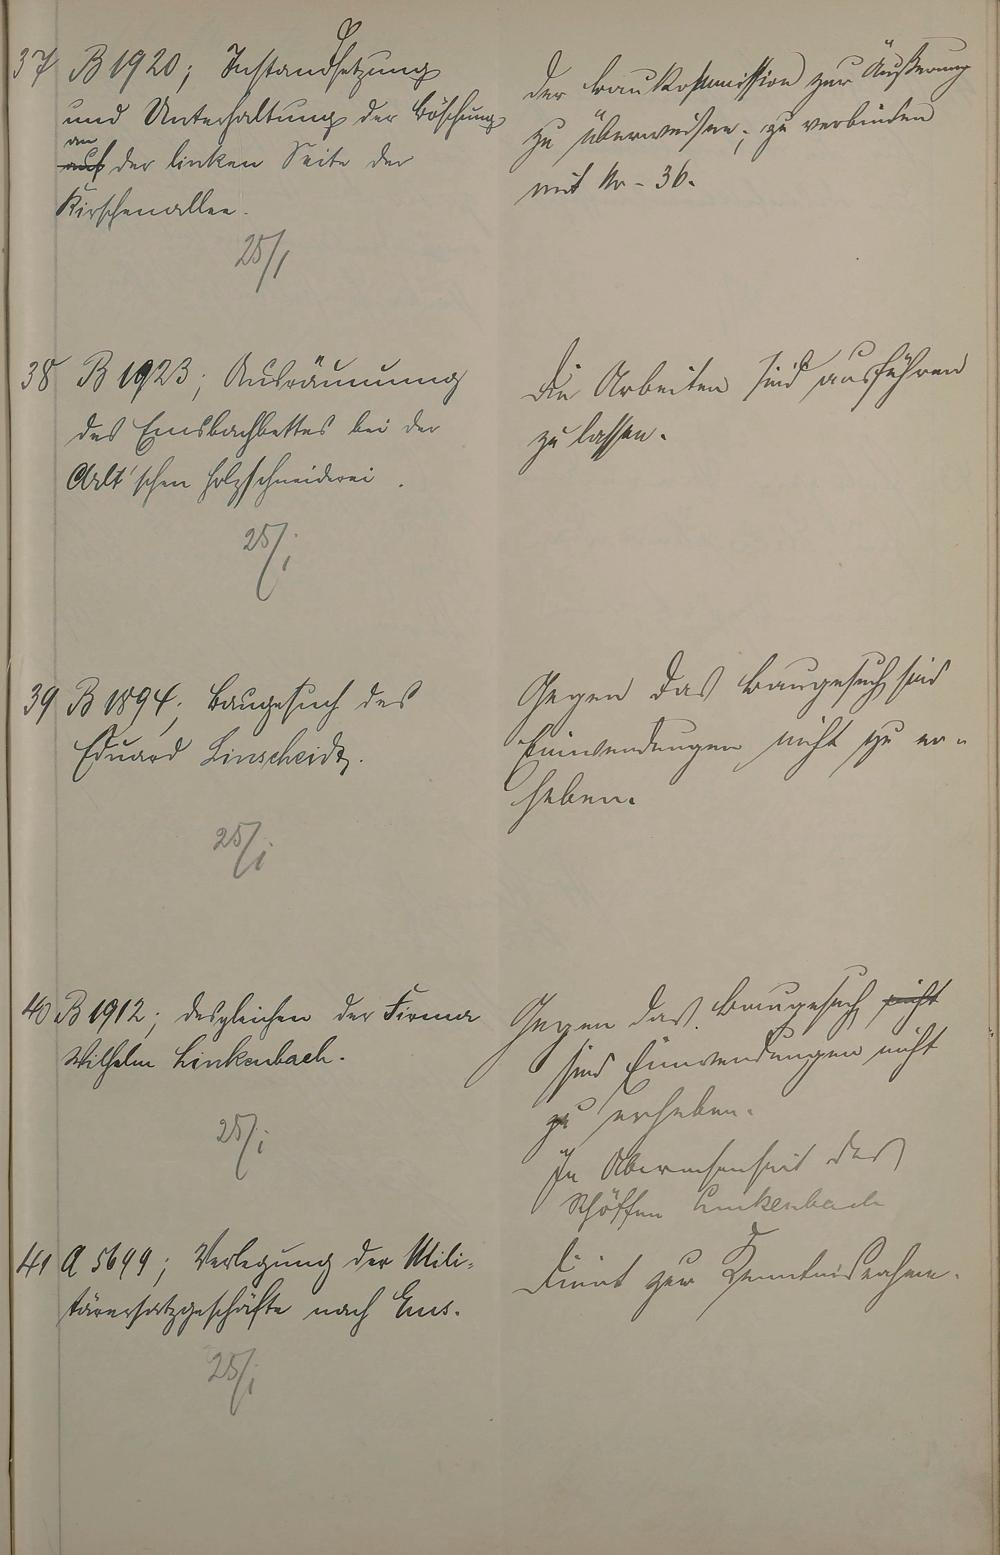 37 B 1920; Instandsetzung
und Unterhaltung der Böschung
an
auf der linken Seite der
Kirschenallee.
25/1
Der Baukommission zur Äußerung
zu überweisen; zu verbinden
mit Nr. 36.
38 B 1923; Ausräumung
des Emsbachbettes bei der
Arlt'schen Holzschneiderei.
25/1
Die Arbeiten sind ausführen
zu lassen.
39 B 1894; Baugesuch des
Eduard Linscheidt.
25/1
Gegen das Baugesuch sind
Einwendungen nicht zu er-
heben.
40 B 1912; desgleichen der Firma
Wilhelm Linkenbach.
25/1
Gegen das Baugesuch nicht
sind Einwendungen nicht
zu erheben.
In Abwesenheit des
Schöffen Linkenbach
41 A 5699; Verlegung der Mili-
tärersatzgeschäfte nach Ems.
25/1
Dient zur Kenntnisnahme.